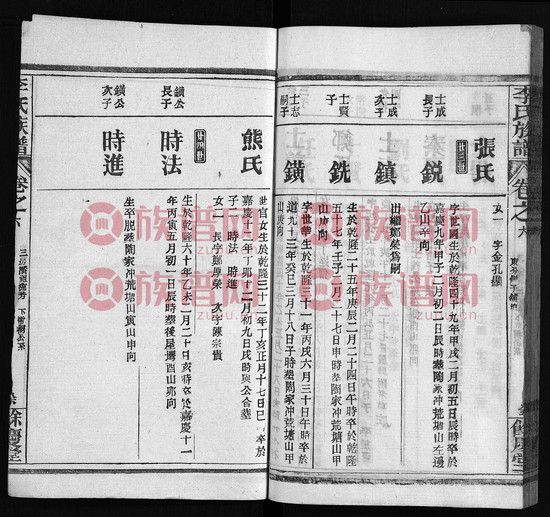 李氏族譜
卷之六
女一 字金孔熾
張氏
士成
長子
銳
字世國生於乾隆四十九年甲戌二月初五日辰時卒於
嘉慶九年甲子二月初一日辰時塟陶家冲荒塘山左邊
乙山辛向
士成
次子
士鎮
出繼鄭榮爲嗣
士賢
子
銑
生於乾隆二十五年庚辰二月二十四日午時卒於
五十七年壬子二月二十七日申時塟陶家冲荒塘山甲
山庚向
士志
嗣子
鐄
字世華生於乾隆三十一年丙戌六月三十日午時卒於
道光十三年癸巳三月十八日子時塟陶家冲荒塘山甲
山庚向
熊氏
世官女生於乾隆三十二年丁亥正月十七日巳 卒於
嘉慶十二年丁卯十二月初九日戌時與公合塟
子二 時法 時進
女二 長字鄭厚榮 次字陳宗貴
鐄公
長子
時法
生於乾隆六十年乙未二月二十日亥時卒於嘉慶十一
年丙寅五月初一日辰時塟後屋塆酉山卯向
鐄公
次子
時進
生卒脫塟陶家冲荒塘山寅山申向
李氏族譜
卷之六
族谱网
zupu.cn